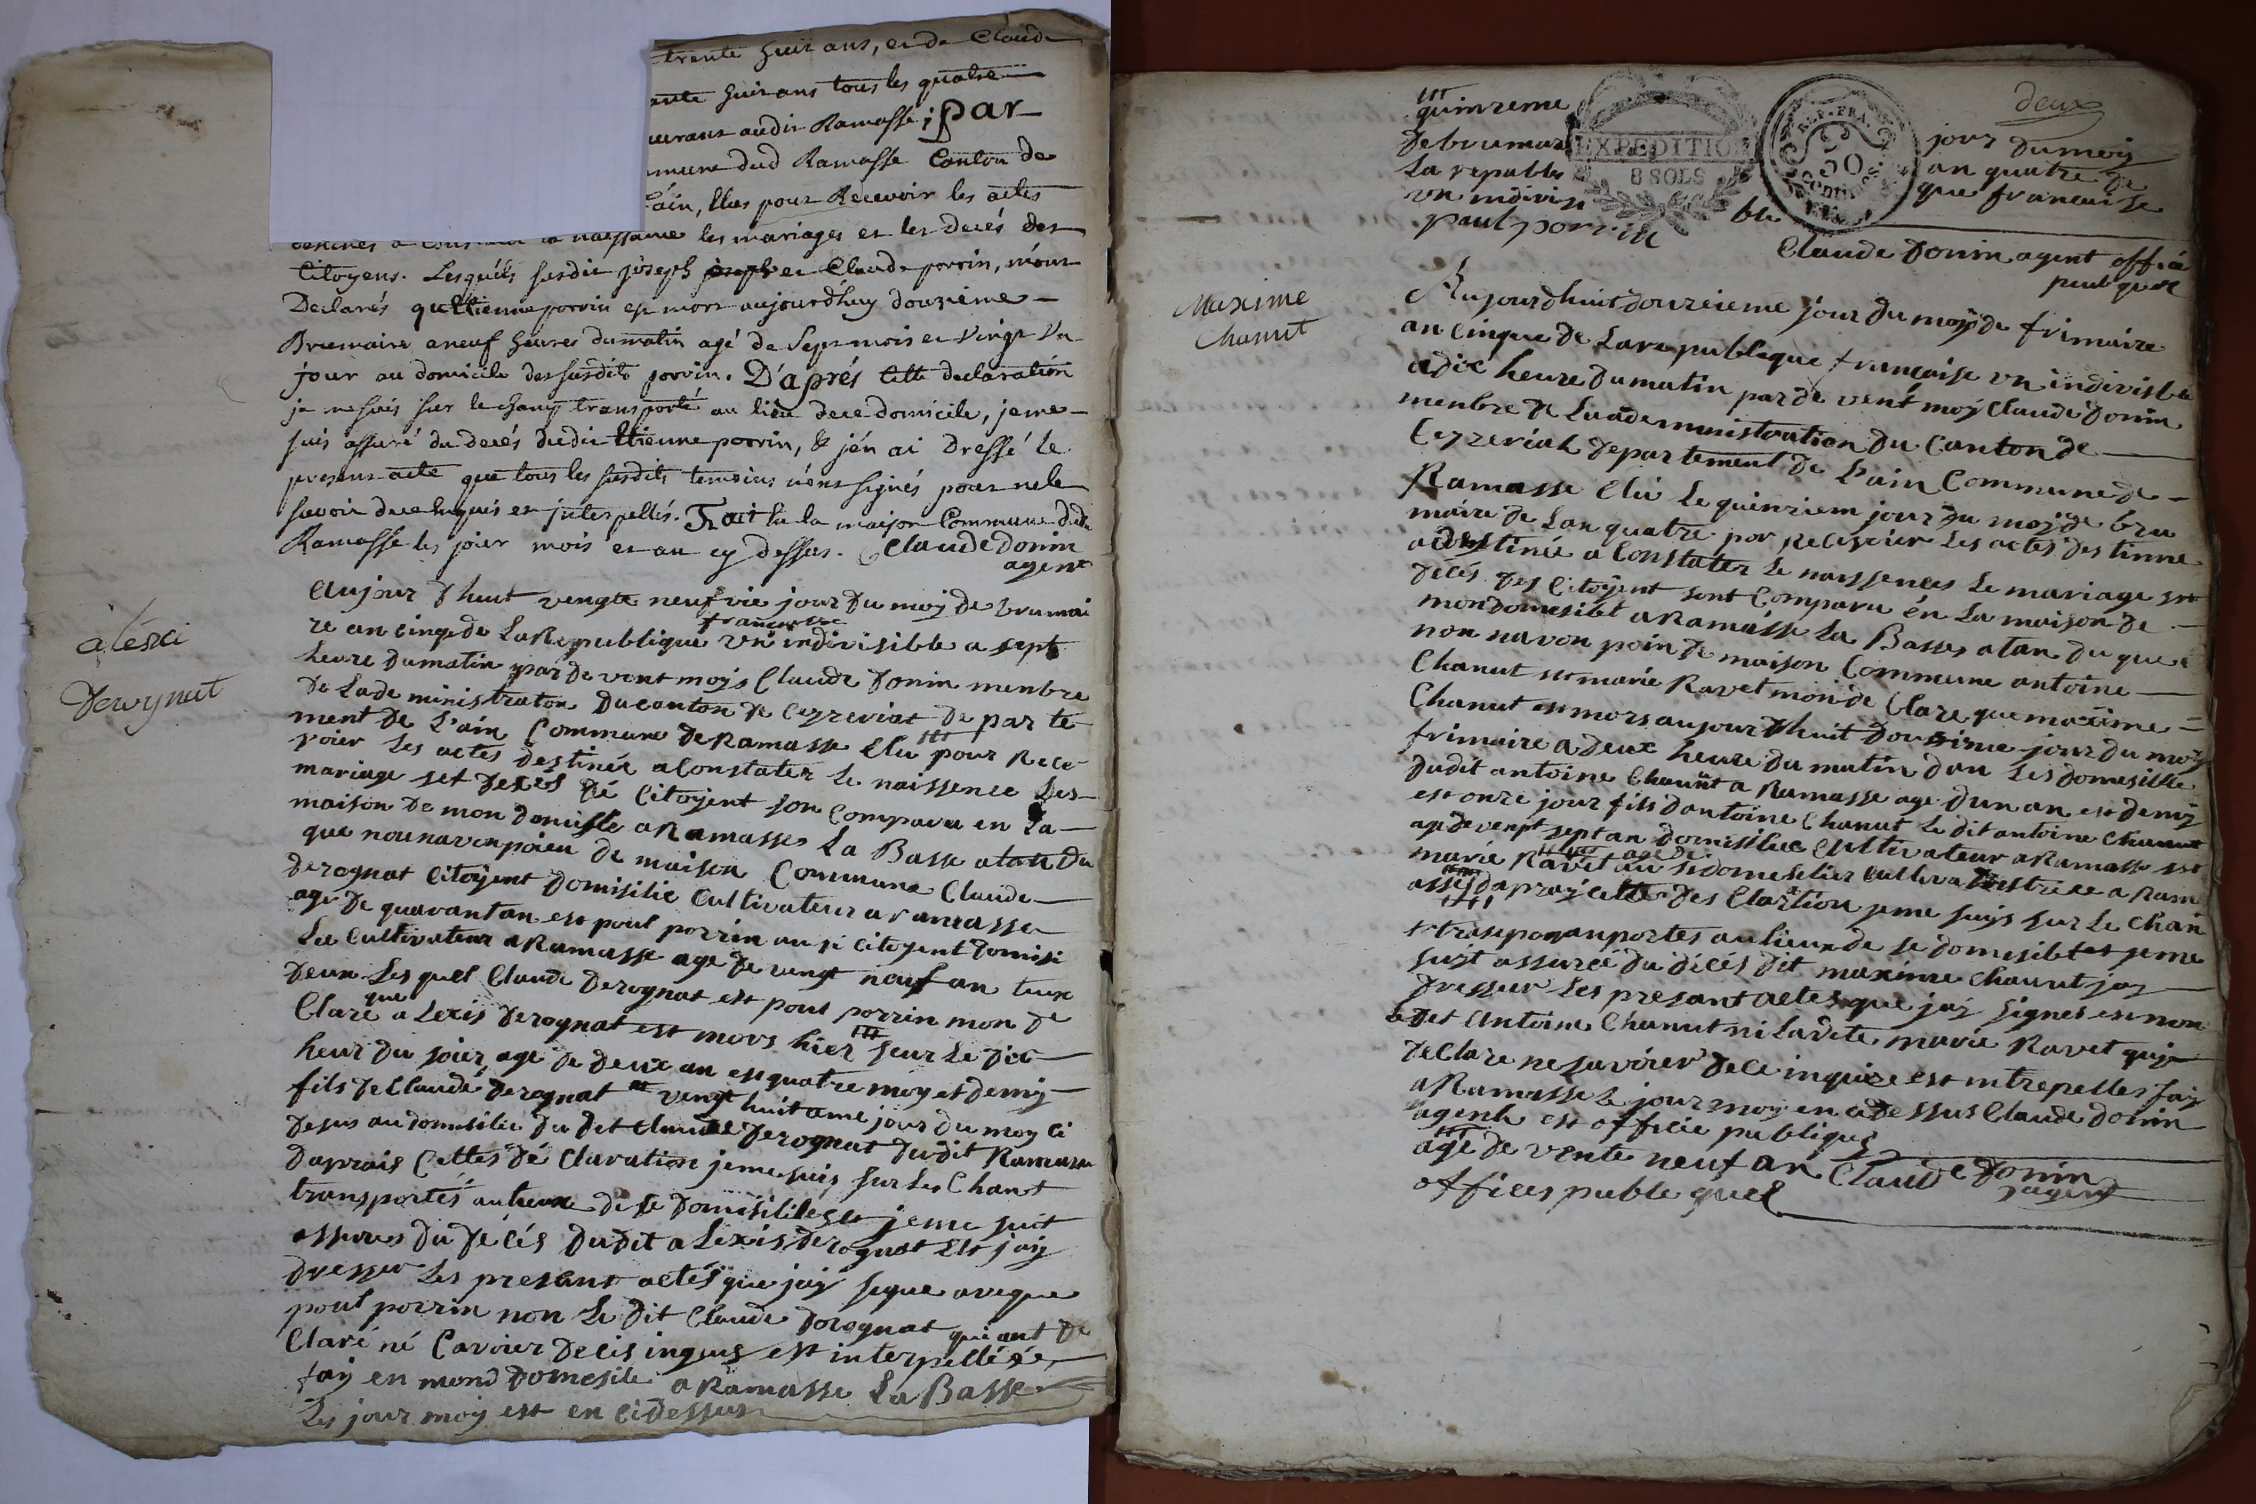 trente huit ans, et de Claude
huit ans tous les quatre
audit Ramasse ; par
dud Ramasse Canton de
l'áin, Elus pour Recevoir les actes
naissance les mariages et les decés des
Citoyens. Lesquels susdit joseph et Claude porrin, m'ont
Declarés qu'Etienne porrin est mort aujourd'huy douzième
Brumaire a neuf heures du matin agé de Sept mois et vingt un
jour au domicile des susdits porrin. D'aprés Cette declaration
je me suis sur le champ transporté au lieu de ce domicile, je me
suis assuré du decés dudit Etienne porrin, & j'en ai Dressé le
present acte que tous les susdits temoins n'ont signés pour ne le
savoir de ce Enquis et interpellés. Fait En la maison Commune dudit
Ramasse les jour mois et an cy dessus. Claude donin
agent
alésci
Derognat
aujour dhuit vengte neufvie jour du moy de brumai
re an cinqe de La Republique francaise un indivisible a sept
heure du matin par de vent moys Claude donin menbre
de Lade ministraton du canton de Cezreviat de par te
ment de L'ain Commune de Ramasse Elu pour Rece
voier Les actes destinée a Constater Le naissence Les
mariage set decés dé Citoyent son Comparu en La
maison de mon domisile a Ramasses La Basse atan Du
que nou navon poien de maison Commune Claude
derognat Citoyent domisilie Cultivateur a ramasse
age de quarantan est poul porrin ausi citoyent domisi
Lie Cultivateur a Ramasse age de vengt neuf an tux
deux Les quel Claude derognat est poul porrin mon de
Claré que a Lexis derognat est mors hier seur Le dix
heur du soier age de deux an est quatre moy et demiy
fils de Claude derognat vengt huit ame jour du moy ci
desus au domisilie du dit Claude derognat dudit Ramasse
daprais Cettes dé Claration je me suis sur Les Chant
transportés au lieux de se domisilile je me suit
assures du décés dudit a Lexis derognat Est jaiy
dresser Les presant actes que jaiy signe aveque
poul porrin non Le dit Claude derognat qui ont de
Claré né Cavoier de cis inquis est interpelléée
faiy en mond domesile a Ramasse La Basse
Les jour moy est en cidessus
deux
quinzeme jour du moy
de brumai EXPEDITION an quatre de
La republi 8 SOLS que francaise
un indivisi ble
paul porrin
REP. FRA.
50
Centimes
Claude donin agent office
publique
Maxime
Chanut
Aujourdhuit douzeieme jour du moy de frimaire
an cinque de Lare publique francaise un indivisble
a dix heure du matin par de vent moy Claude donin
menbre de Luade ministration du Canton de
Cezzeriat departement de L'ain Commune de
Ramasse Elú Le quinziem jour du moy de bru
maire de Lan quatre por Recevoier Les actes des tinne
a Constater Le naissences Le mariage set
décés des Citoyent sont Comparu én La maison de
mon domesilet a Ramasse La Basses atan du que
non navon poin de maison Commune antoine
Chanut set marie Ravet mon de Clare que maxime
Chanut est mors aujour dhuit douzime jour du moy
frimaire a deux heure du matin dan Les domesille
dudit antoine Chanut a Ramasse age dun an est demiy
est onze jour fils dantoine Chanut Le dit antoine Chanut
age de vengt sept an domisilie Cultivateur a Ramasse set
marie Ravet ausi domeselier a Ram
asse daprais cette des Clartion je me suys sur Le Chan
au lieux de se domesilet et je me
suyt assurée du décés dit maxime Chanut jay
dresser Les presant actes que jay signes est non
Le dit Antoine Chanut ni Ladite marie Ravet qui
de Clare ne savoier de ce inquire est intrepelles fay
a Ramasse Le jour moy en cidessus Claude donin
agent est officie publique
age de vente neuf an Claude donin
offices publequel agent